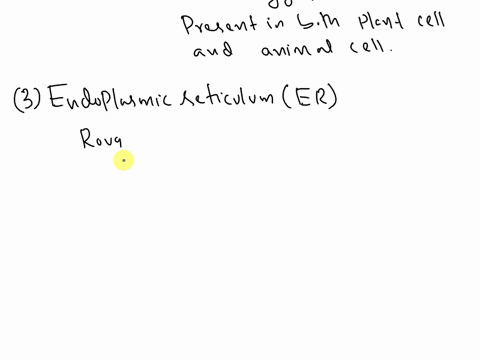 Present in both plant cell
and animal cell.
(3) Endoplasmic reticulum (ER)
Roug